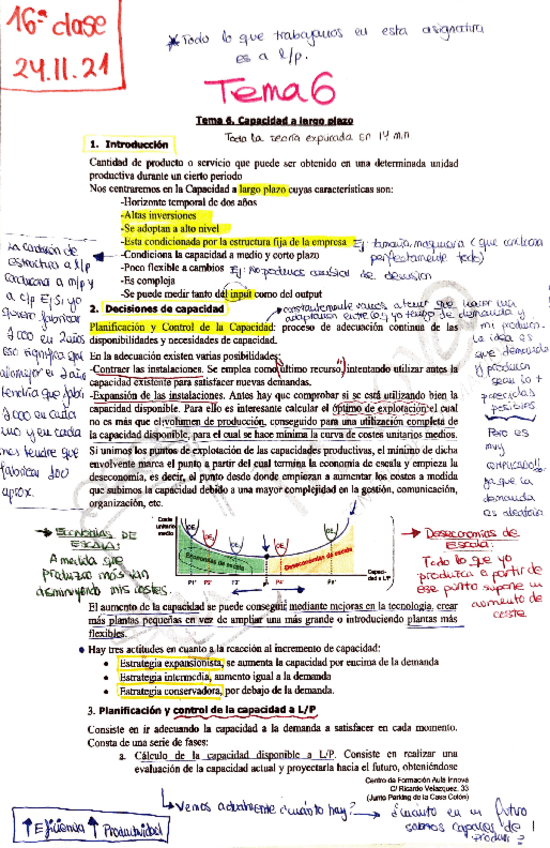 16ª clase
24.11.21
* Todo lo que trabajamos en esta asignatura
es a l/p.
Tema 6
Tema 6. Capacidad a largo plazo
Toda la teoría explicada en 14 min
1. Introducción
Cantidad de producto o servicio que puede ser obtenido en una determinada unidad
productiva durante un cierto periodo
Nos centraremos en la Capacidad a largo plazo cuyas características son:
-Horizonte temporal de dos años
-Altas inversiones
-Se adoptan a alto nivel
-Esta condicionada por la estructura fija de la empresa
Ej: tamaño, maquinaria (que conlleva
perfectamente todo)
-Condiciona la capacidad a medio y corto plazo
-Poco flexible a cambios
Ej: No podemos cambiar de decisión
-Es compleja
-Se puede medir tanto del input como del output
La condición de
estructura a l/p
condiciona a m/p y
a c/p Ej: si yo
quiero fabricar
2000 en 2 años
eso significa que
a lo mejor en 2 años
tendría que fabri
1000 en cada
uno y en cada
mes tendré que
fabricar 100
aprox.
2. Decisiones de capacidad
constantemente vamos a tener que hacer una
adaptación entre lo q yo tengo de demanda y
mi produc.
La idea es
que demanda
y producción
sean lo +
parecidas
posibles
Pero es
muy
complicado!!
ya que la
demanda
es aleatoria
Planificación y Control de la Capacidad: proceso de adecuación continua de las
disponibilidades y necesidades de capacidad.
En la adecuación existen varias posibilidades:
-Contraer las instalaciones. Se emplea como "último recurso", intentando utilizar antes la
capacidad existente para satisfacer nuevas demandas.
-Expansión de las instalaciones. Antes hay que comprobar si se está utilizando bien la
capacidad disponible. Para ello es interesante calcular el óptimo de explotación: el cual
no es más que el volumen de producción, conseguido para una utilización completa de
la capacidad disponible, para el cual se hace mínima la curva de costes unitarios medios.
Si unimos los puntos de explotación de las capacidades productivas, el mínimo de dicha
envolvente marca el punto a partir del cual termina la economía de escala y empieza la
deseconomía, es decir, el punto desde donde empiezan a aumentar los costes a medida
que subimos la capacidad debido a una mayor complejidad en la gestión, comunicación,
organización, etc.
Economías de
Escala:
A medida que
produzco más van
disminuyendo mis costes.
Coste
unitario
medio
OE
OE
OE
OE
Economías de escala
Deseconomías de escala
P1'
P2'
P3'
P4'
P5'
Capaci-
dad a L/P
Deseconomías de
Escala:
Todo lo que yo
produzca a partir de
ese punto supone un
aumento de
coste
El aumento de la capacidad se puede conseguir mediante mejoras en la tecnología, crear
más plantas pequeñas en vez de ampliar una más grande o introduciendo plantas más
flexibles.
Hay tres actitudes en cuanto a la reacción al incremento de capacidad:
• Estrategia expansionista, se aumenta la capacidad por encima de la demanda
• Estrategia intermedia, aumento igual a la demanda
• Estrategia conservadora, por debajo de la demanda.
3. Planificación y control de la capacidad a L/P
Consiste en ir adecuando la capacidad a la demanda a satisfacer en cada momento.
Consta de una serie de fases:
a. Cálculo de la capacidad disponible a L/P. Consiste en realizar una
evaluación de la capacidad actual y proyectarla hacia el futuro, obteniéndose
Centro de Formación Aula Innova
C/ Ricardo Velazquez, 33
(Junto Parking de la Casa Colón)
Vemos actualmente cuánto hay? → ¿cuánto en un futuro
somos capaces de
producir?
↑ Eficiencia ↑ Productividad